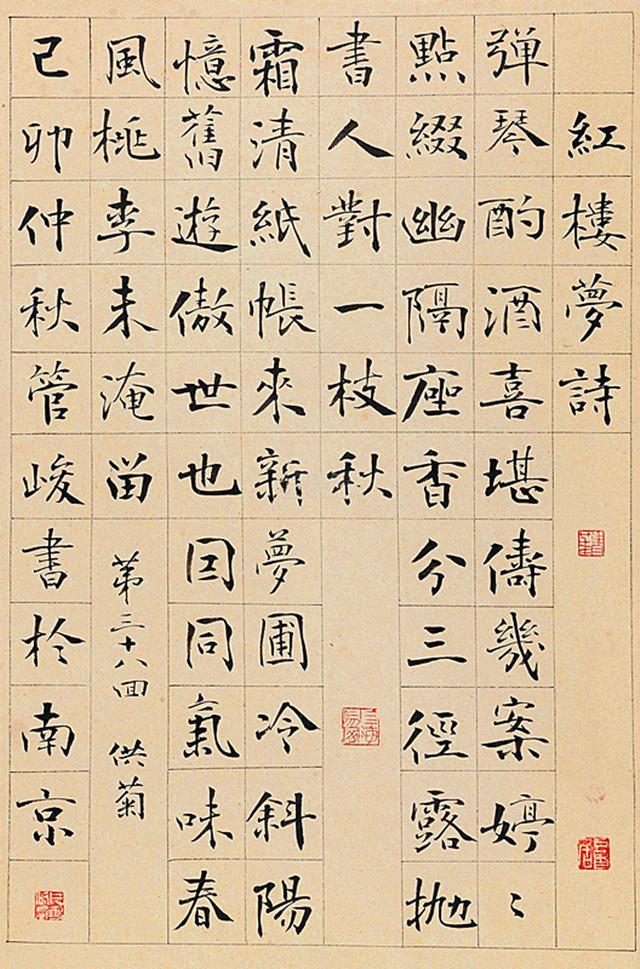 紅樓夢詩
彈琴酌酒喜堪儔幾案婷〻
點綴幽隔座香分三徑露拋
書人對一枝秋
霜清紙帳來新夢圃冷斜陽
憶舊遊傲世也囙同氣味春
風桃李未淹留 第三十八回 供菊
己卯仲秋管峻書於南京